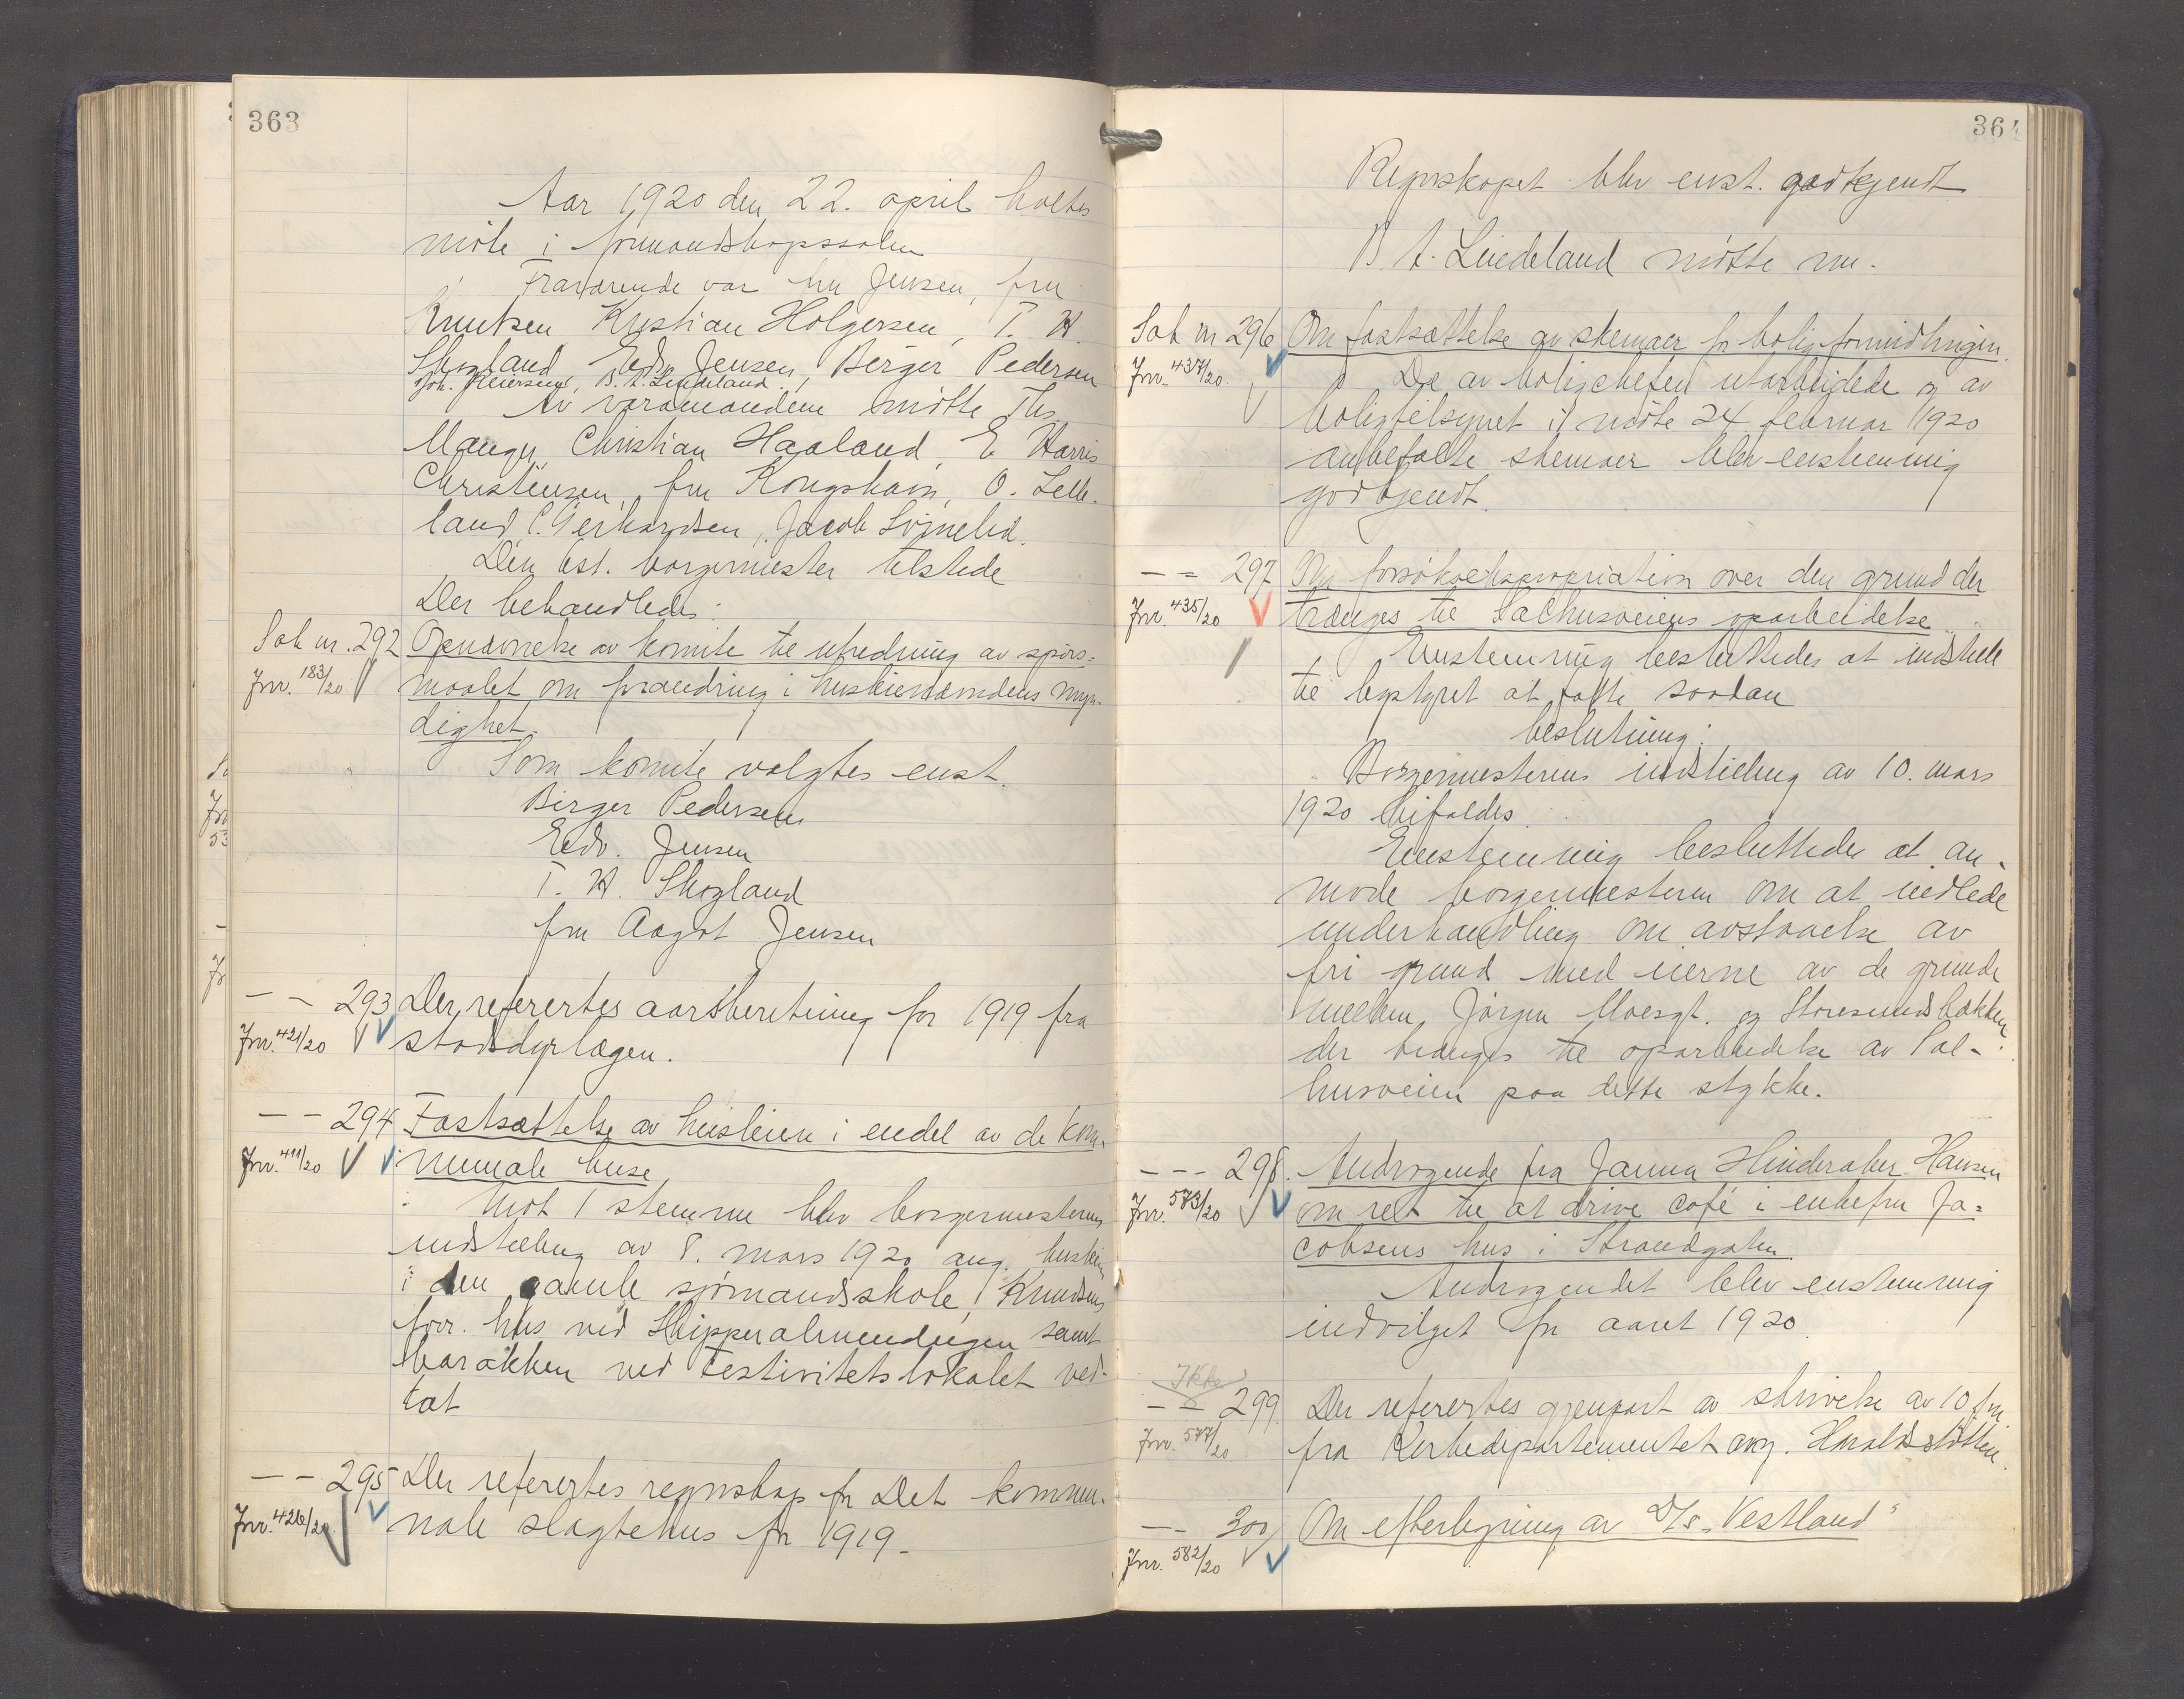 363
Aar 1920 den 22. april holtes
møte i formandskapssalen
Fraværende var fru Jensen, fru
Knutsen, Kristian Holgersen, T. H.
Skogland, Edv. Jensen, Berger Pedersen
Joh. Reiersen, B. A. Lindeland.
Av varamændene møtte Ths.
Manger, Christian Haaland, E. Harris
Christensen, fru Kongshavn, O. Lelle-
land, C. Gerhardsen, Jacob
Den best. borgermester tilstede
Der behandledes:
Sak nr. 292 Opnævnelse av komite til utredning av spørs-
Jnr. 183/20 maalet om forandring i husleienævndens myn-
dighet.
Som komite valgtes enst.
Birger Pedersen
Edv. Jensen
T. H. Skogland
fru Aagot Jensen
— — 293 Der refertes aarsberetning for 1919 fra
Jnr. 421/20 stadsdyrlægen.
— — 294 Fastsættelse av husleien i endel av de kom-
Jnr. 411/20 munale huse
Mot 1 stemme blev borgermesterens
indstilling av 8. mars 1920 ang. husleien
i den gamle sjømandsskole, Knudsens
forr. hus ved Skipperalmendingen samt
barakken ved Festivitetslokalet ved-
tat
— — 295 Der refertes regnskap for Det kommu-
Jnr. 426/20. nale slagtehus for 1919.
364
Regnskapet blev enst. godkjendt
B. A. Lindeland møtte nu.
Sak nr 296 Om fastsættelse av skemaer for boligformidlingen.
Jnr. 437/20. De av boligchefen utarbeidede og av
boligtilsynet i møte 24 februar 1920
anbefalte skemaer blev enstemmig
godkjendt.
— — 297 Ny forsøksekspropriation over den grund der
Jnr. 435/20 trænges til Salhusveiens oparbeidelse
Enstemmig besluttedes at indstille
til bystyret at fatte saadan
beslutning:
Borgermesterens indstilling av 10. mars
1920 bifaldes.
Enstemmig besluttedes at an-
mode borgermesteren om at indlede
underhandling om avstaaelse av
fri grund med eierne av de grunde
mellem Jørgen Moesgt. og Storesundsbakken
der trænges til oparbeidelse av Sal-
husveien paa dette stykke.
— — - 298. Andragende fra Janna Hinderaker Hansen
Jnr. 573/20 om ret til at drive café i enkefru Ja-
cobsens hus i Strandgaten.
Andragendet blev enstemmig
indvilget for aaret 1920.
Ikke
— — 299. Der refertes gjenpart av skrivelse av 10 fm.
Jnr. 577/20 fra Kirkedepartementet ang. Haraldsstøtten.
— — 300 Om efterligning av D/s „Vestland"
Jnr. 582/20